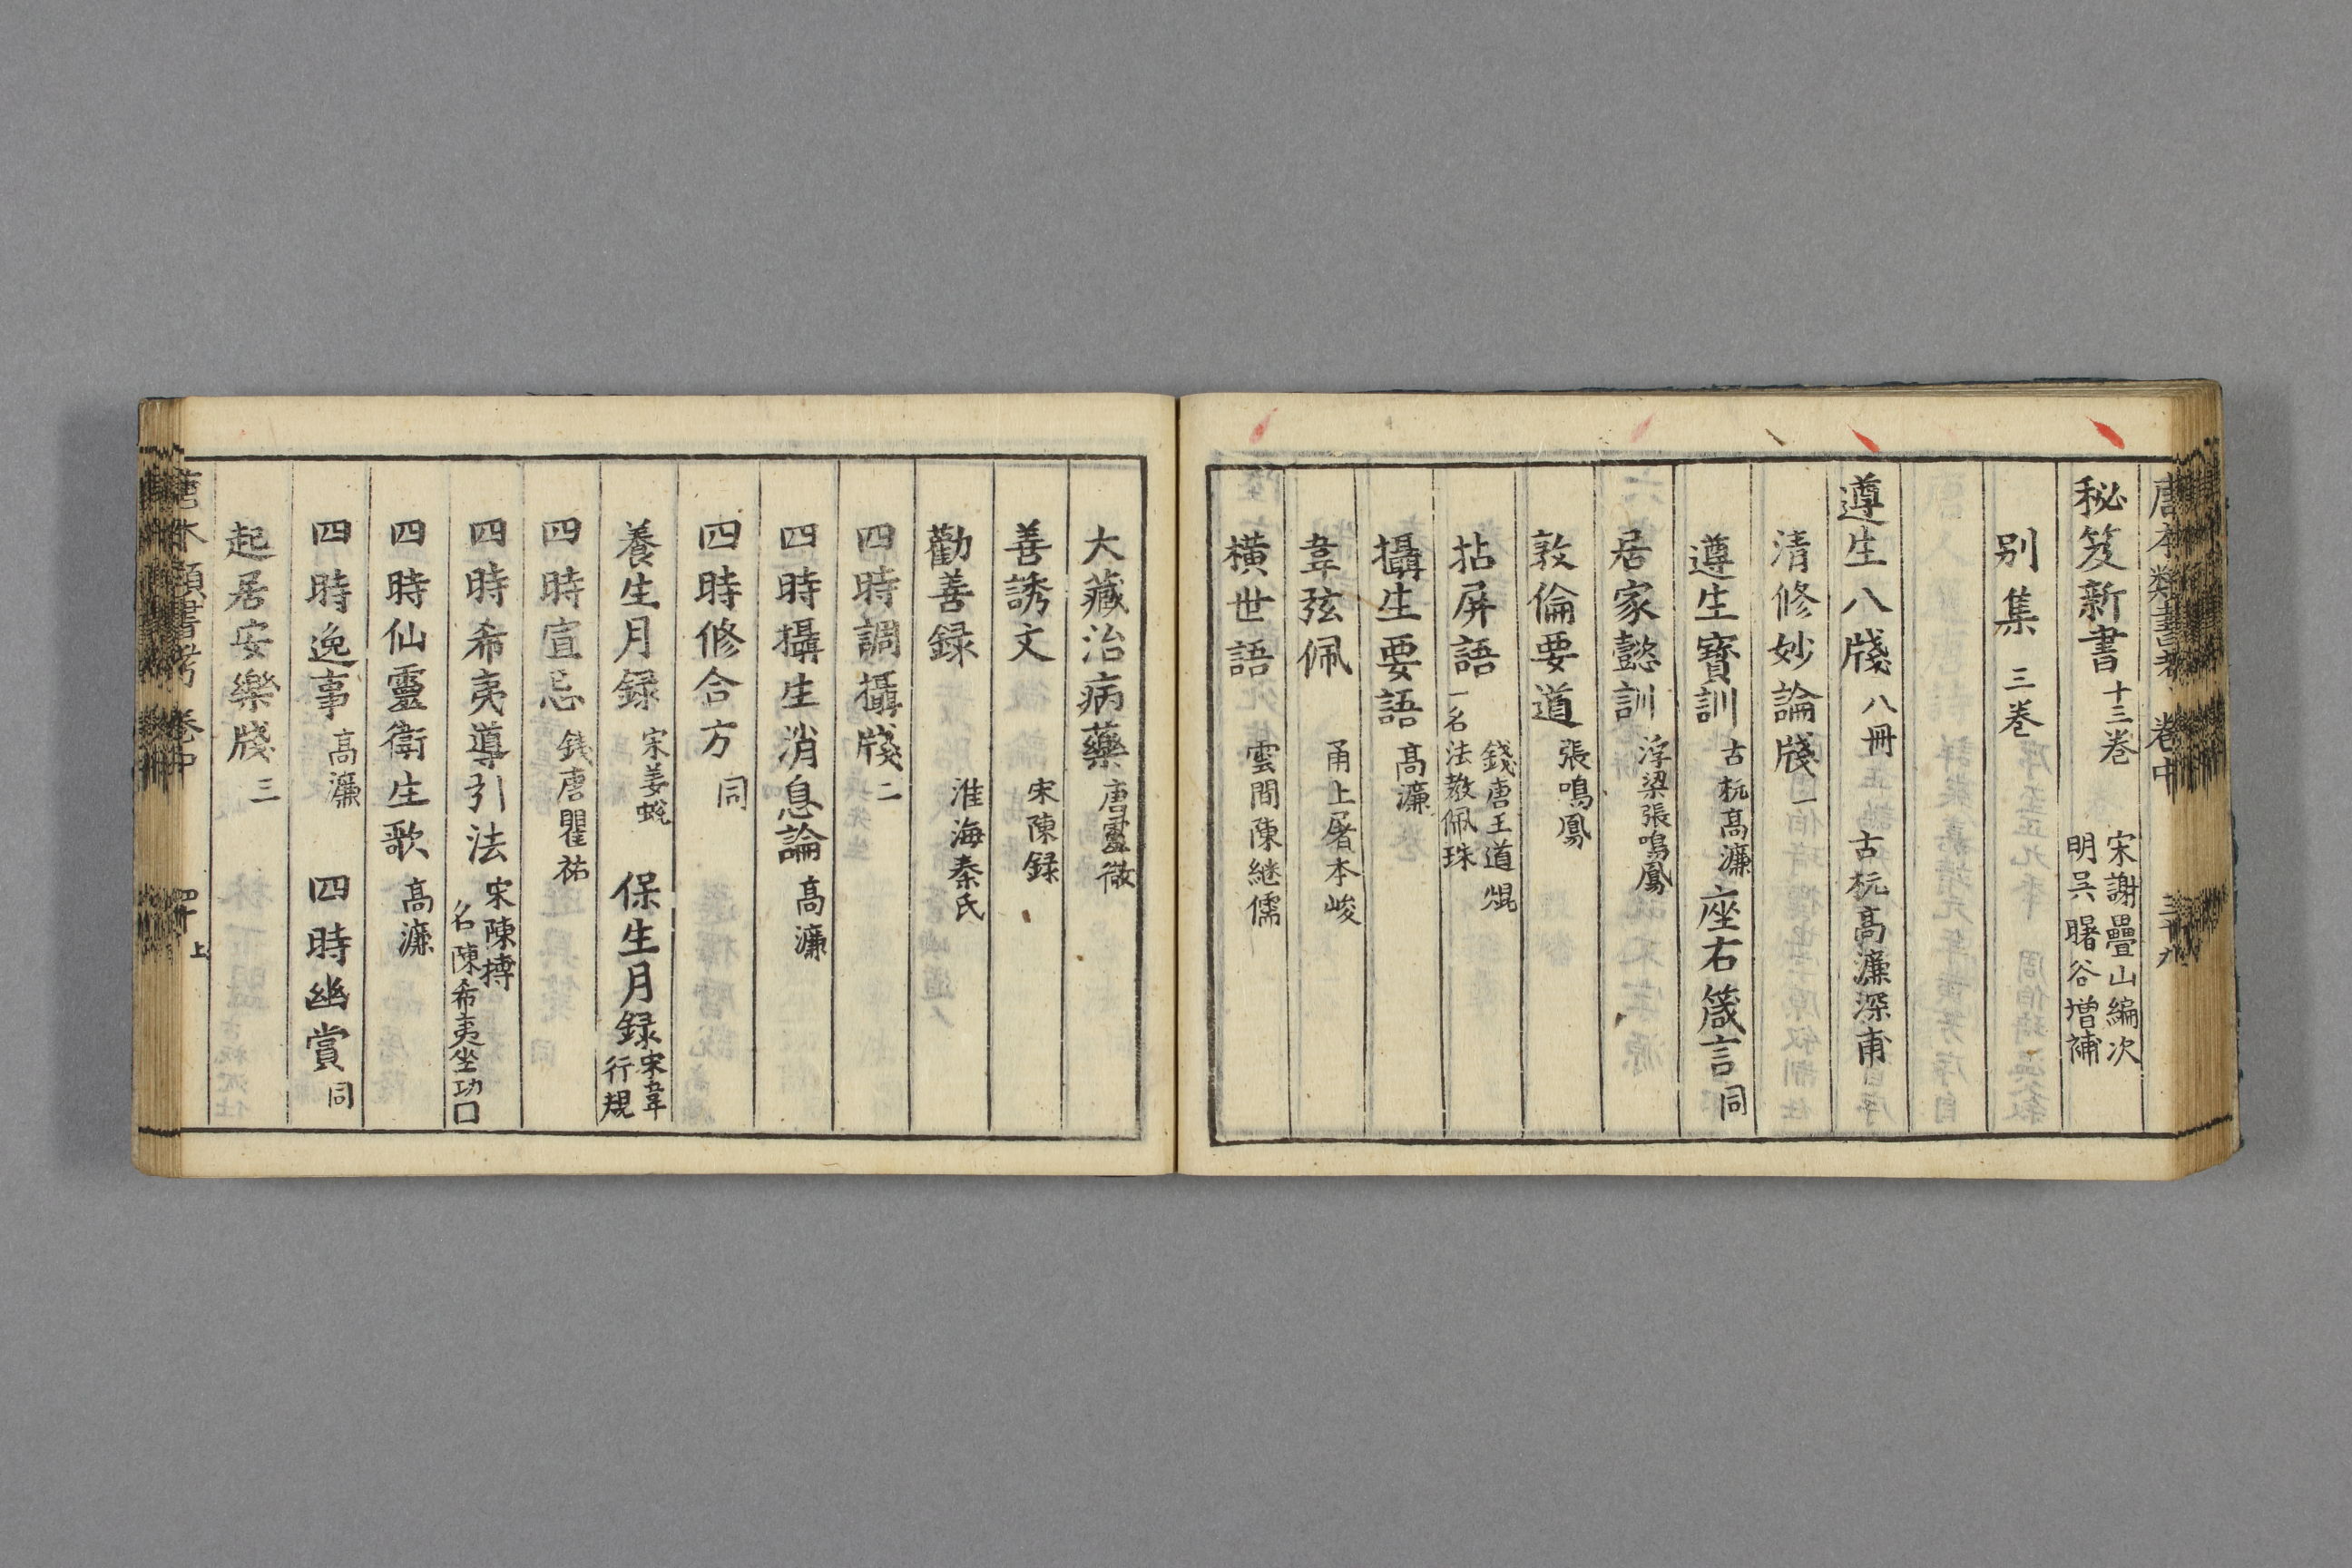 唐本類書考 卷中 三十九
秘笈新書 十三巻 宋謝疊山編次 明吳曙谷增補
別集 三巻
遵生八牋 八冊 古杭高濂深甫
清修妙論牋 一
遵生寶訓 古杭高濂 座右箴言 同
居家懿訓 浮梁張鳴鳳
敦倫要道 張鳴鳳
拈屏語 錢唐王道焜 一名法教佩珠
攝生要語 高濂
韋弦佩 甬上屠本畯
橫世語 雲間陳継儒
大藏治病藥 唐靈徹
善誘文 宋陳録
勸善録 淮海秦氏
四時調攝牋 二
四時攝生消息論 高濂
四時修合方 同
養生月録 宋姜蛻 保生月録 宋韋行規
四時宜忌 錢唐瞿祐
四時希夷導引法 宋陳摶 名陳希夷坐功口
四時仙靈衛生歌 高濂
四時逸事 高濂 四時幽賞 同
起居安樂牋 三
唐本類書考 卷中 四十 上